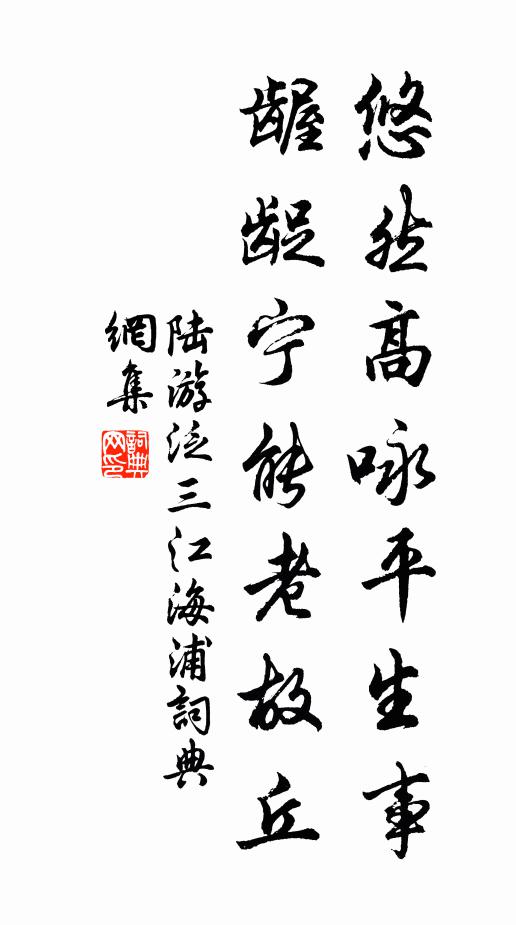 悠然高咏平生事
龌龊宁能老故丘
陆游泛三江海浦詞典
網集
詞典网印